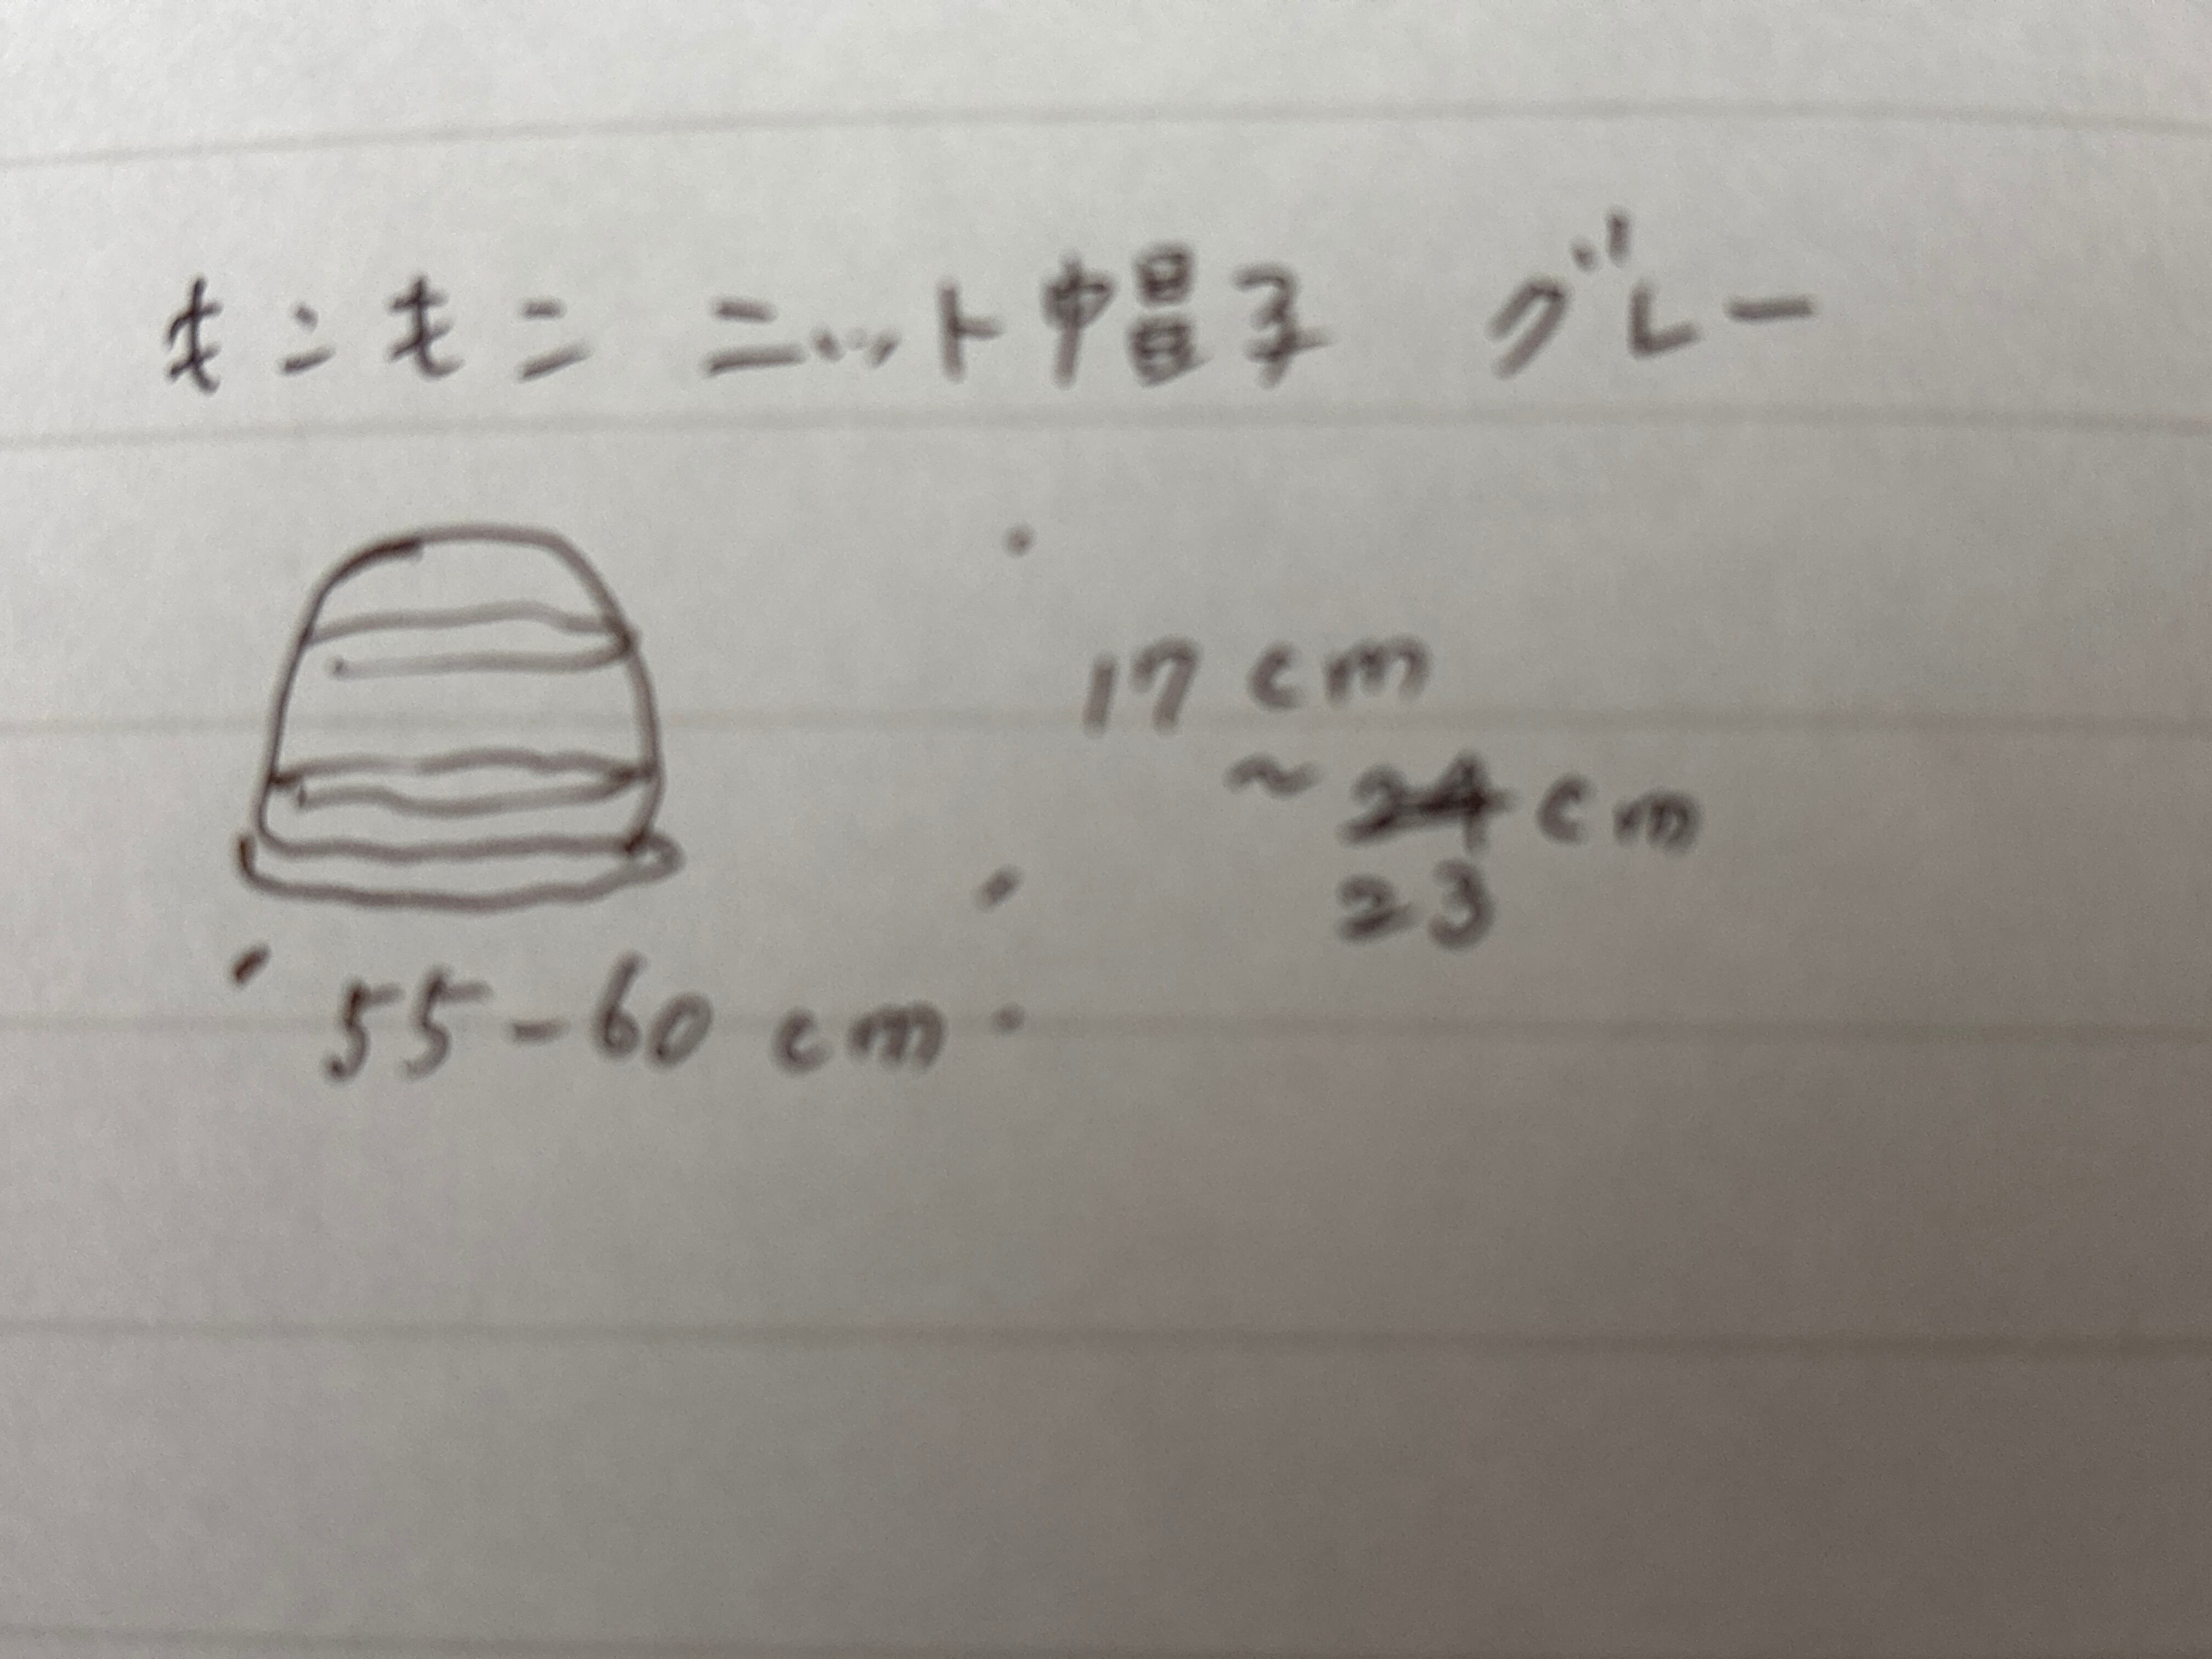 モンモン ニット帽子 グレー
17 cm
~ 24 cm
23
55-60 cm